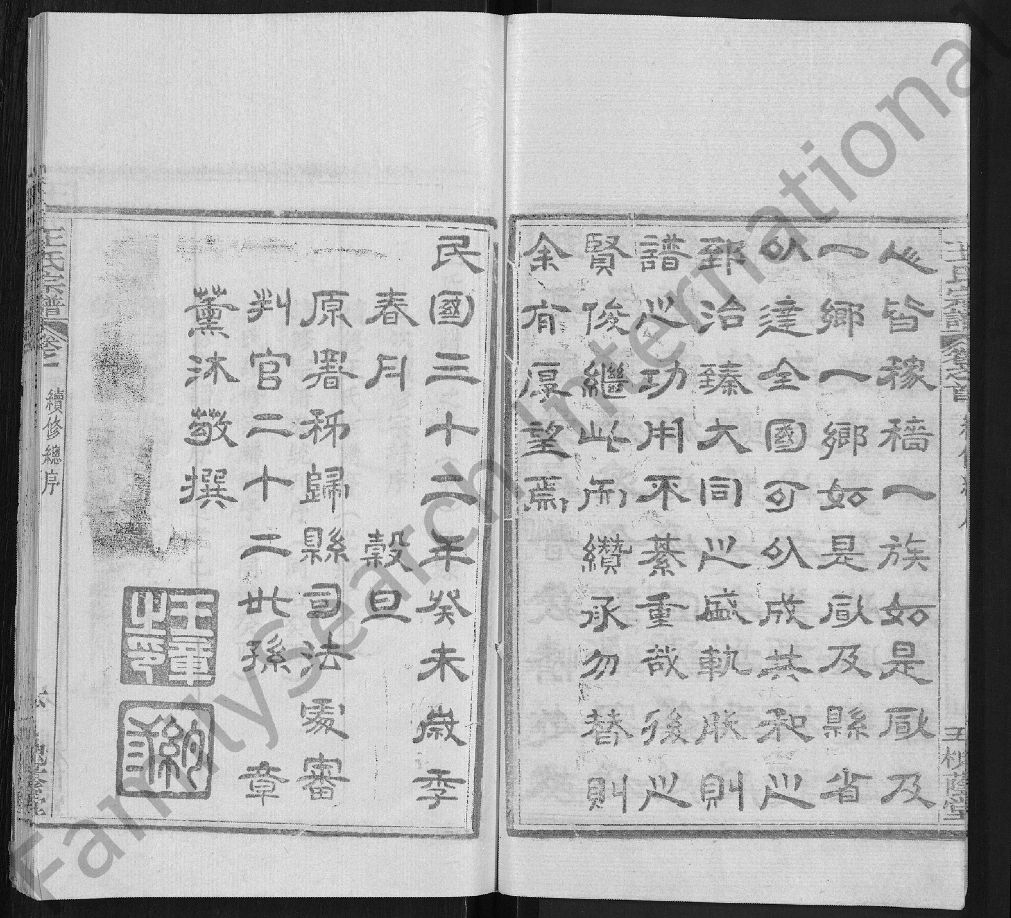 王氏宗譜 卷之首 續修總序 五 槐蔭堂
之皆稼穡一族如是厥及
一鄉一鄉如是厥及縣省
以達全國可以成其和之
郅治臻大同之盛軌肰則
譜之功用不綦重哉後之
賢俊繼此而纘承勿替則
余有厚望焉
民國三十二年癸未歲季
春月 穀旦
原署秭歸縣司法處審
判官二十二世孫 章
薰沐敬撰
王章之印
王氏宗譜 續修總序 六 槐蔭堂
FamilySearch International